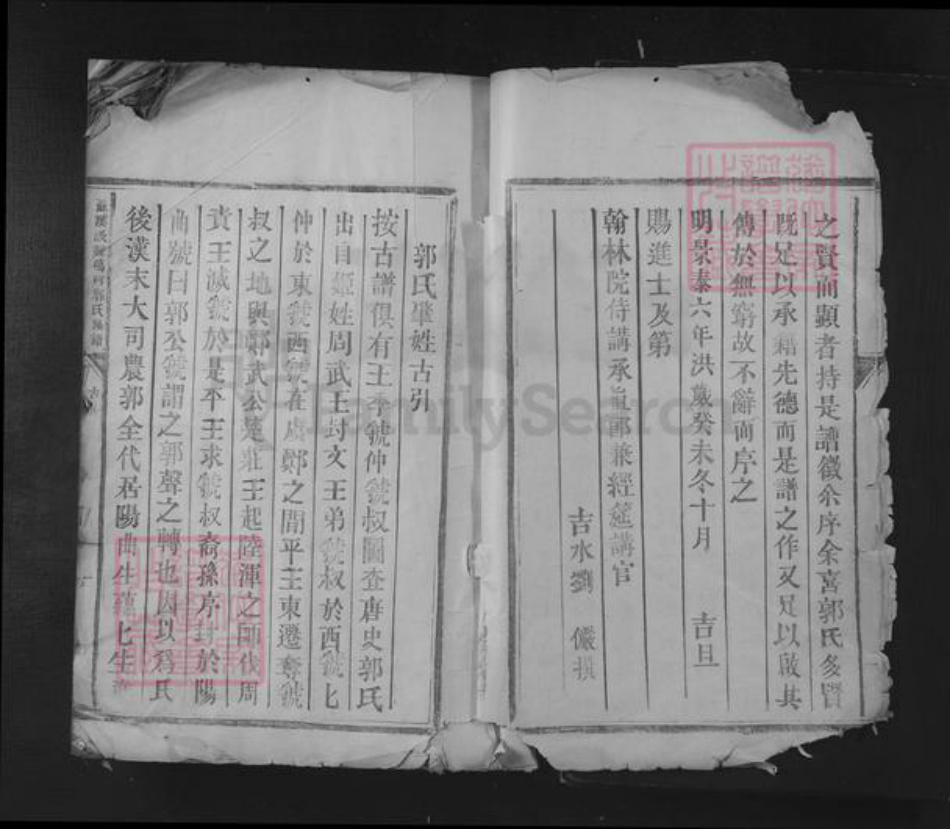 之賢而顯者持是譜徵余序余喜郭氏多賢
既足以承藉先德而是譜之作又足以啟其
傳於無窮故不辭而序之
明景泰六年洪歲癸未冬十月 吉旦
賜進士及第
翰林院侍講承直郎兼經筵講官
吉水劉 儼撰
郭氏肇姓古引
按古譜俱有王季虢仲虢叔圖查唐史郭氏
出自姬姓周武王封文王弟虢叔於西虢
仲於東虢西虢在虞鄭之間平王東遷奪虢
叔之地與鄭武公楚莊王起陸渾之師伐周
責王滅虢於是平王求虢叔裔孫序封於陽
曲號曰郭公虢謂之郭聲之轉也因以爲氏
後漢末大司農郭全代居陽曲生蘊
郭氏
FamilySearch